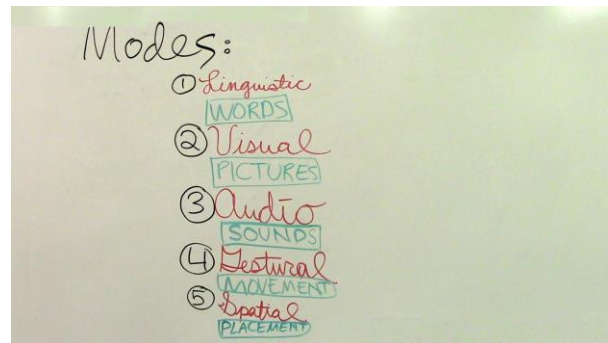 Modes:
① Linguistic
WORDS
② Visual
PICTURES
③ Audio
SOUNDS
④ Gestural
MOVEMENT
⑤ Spatial
PLACEMENT